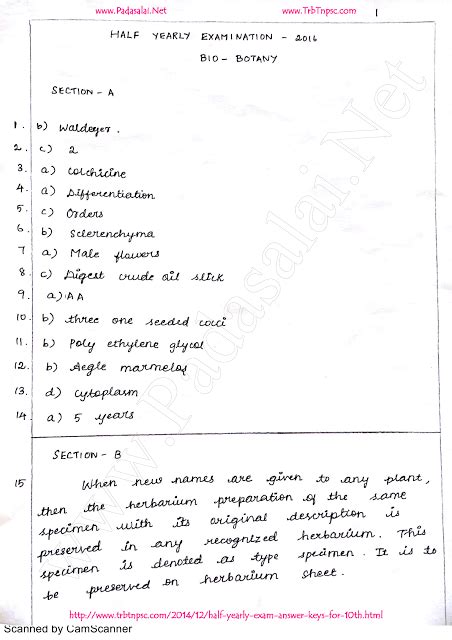 www.Padasalai.Net www.TrbTnpsc.com 1
HALF YEARLY EXAMINATION - 2016
BIO - BOTANY
SECTION - A
1. b) Waldeyer.
2. c) 2
3. a) Colchicine
4. a) Differentiation
5. c) Orders
6. b) Sclerenchyma
7 a) Male flowers
8. c) Digest crude oil slick
9. a) AA
10. b) three one seeded cocci
11. b) Poly ethylene glycol
12. b) Aegle marmelos
13. d) cytoplasm
14. a) 5 years
SECTION - B
15 When new names are given to any plant,
then the herbarium preparation of the same
specimen with its original description is
preserved in any recognized herbarium. This
specimen is denoted as type specimen. It is to
be preserved on herbarium sheet.
www.Padasalai.Net
http://www.trbtnpsc.com/2014/12/half-yearly-exam-answer-keys-for-10th.html
Scanned by CamScanner